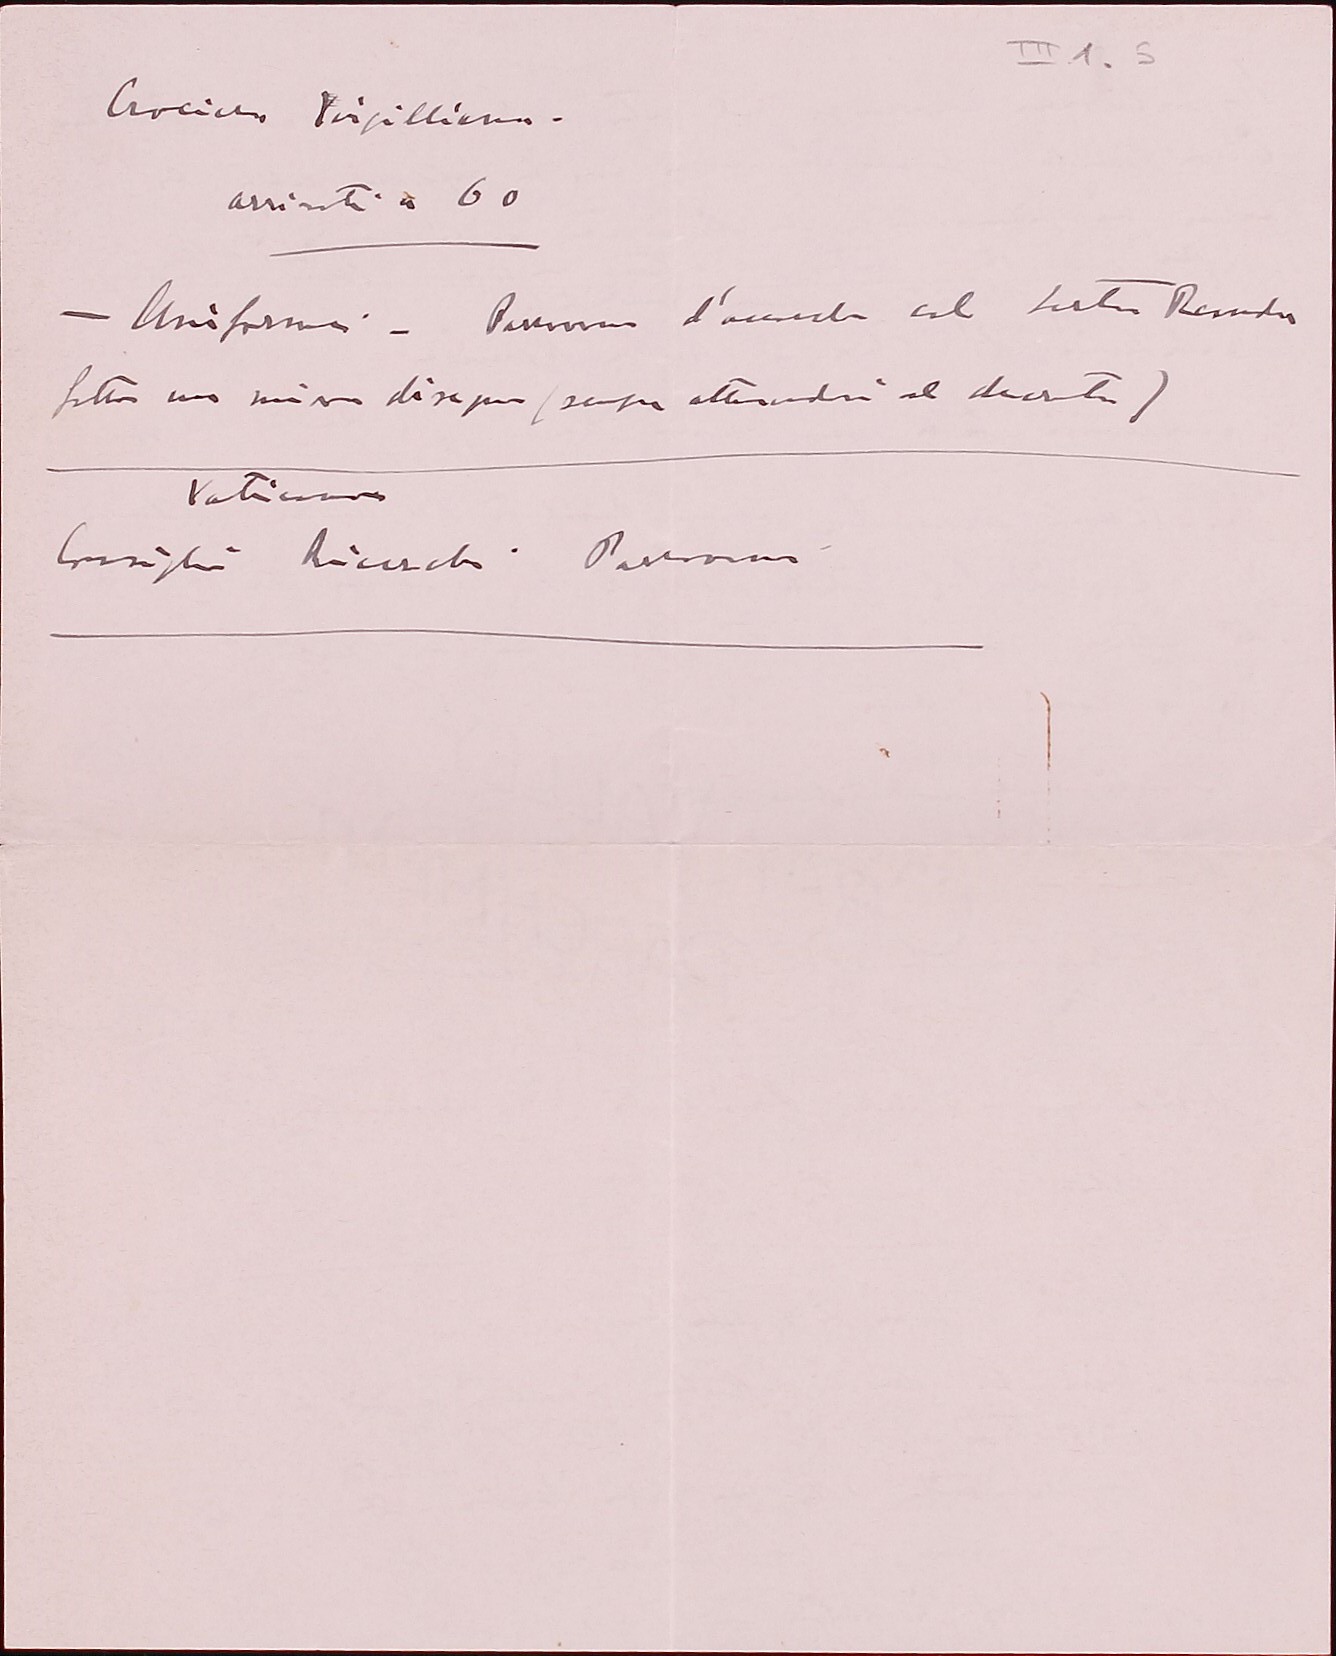 III 1. 5
Crociera Virgilliana -
arrivati a 60
— Uniformi - Parravano d'accordo col sarto Rosati
fatto un nuovo disegno (senza attenersi al decreto)
Vaticano
Consiglio Ricerche Parravano